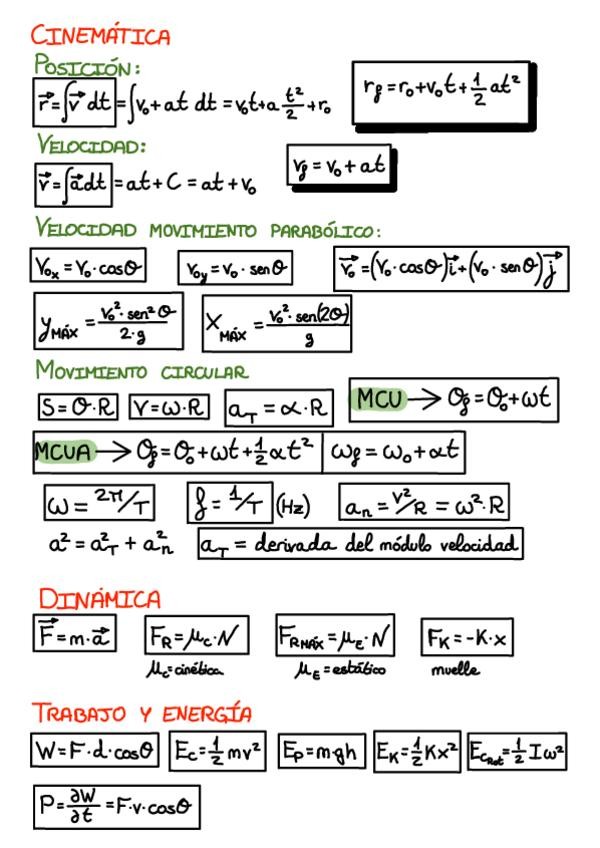 CINEMÁTICA
POSICIÓN:
r⃗ = ∫v⃗ dt = ∫v₀ + at dt = v₀t + a t²/2 + r₀
r_f = r₀ + v₀t + 1/2 at²
VELOCIDAD:
v⃗ = ∫a⃗ dt = at + C = at + v₀
v_f = v₀ + at
VELOCIDAD MOVIMIENTO PARABÓLICO:
V₀ₓ = V₀ · cosθ   V₀y = V₀ · senθ   v₀⃗ = (V₀ · cosθ)i⃗ + (V₀ · senθ)j⃗
y_MÁX = V₀² · sen²θ / 2·g   X_MÁX = V₀² · sen(2θ) / g
MOVIMIENTO CIRCULAR
S = θ · R   V = ω · R   a_T = α · R   MCU → θ_f = θ₀ + ωt
MCUA → θ_f = θ₀ + ωt + 1/2 αt²   ω_f = ω₀ + αt
ω = 2π/T   f = 1/T (Hz)   a_n = V²/R = ω² · R
a² = a_T² + a_n²   a_T = derivada del módulo velocidad
DINÁMICA
F⃗ = m · a⃗   F_R = μ_C · N   F_RMÁX = μ_E · N   F_K = -K · x
μ_C = cinética   μ_E = estático   muelle
TRABAJO Y ENERGÍA
W = F · d · cosθ   E_C = 1/2 mv²   E_P = m·gh   E_K = 1/2 Kx²   E_CRot = 1/2 Iω²
P = ∂W/∂t = F · v · cosθ